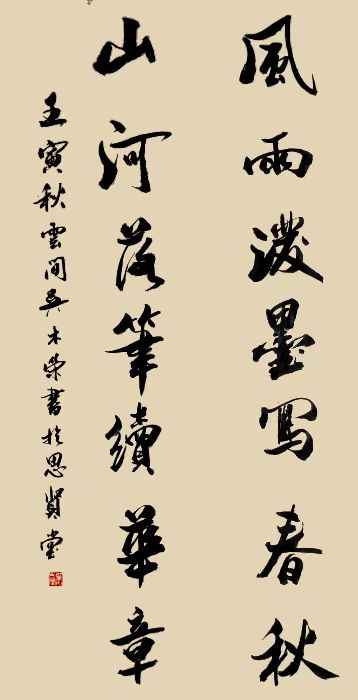 風雨潑墨寫春秋
山河落筆續華章
壬寅秋雲間吳木榮書於思賢堂